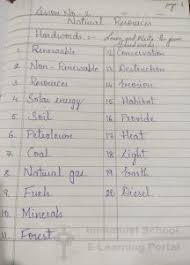 page 1
Lesson No - 2
Natural Resources
Hardwords :- Learn and Write the given Hard words
1. Renewable
2. Non-Renewable
3. Resources
4. Solar energy
5. Soil
6. Petroleum
7. Coal
8. Natural gas
9. Fuels
10. Minerals
11. Forest
12 Conservation
13 Destruction
14 Erosion
15 Habitat
16 Provide
17 Heat
18 Light
19 Earth
20 Diesel
Immanuel School
E-Learning Portal